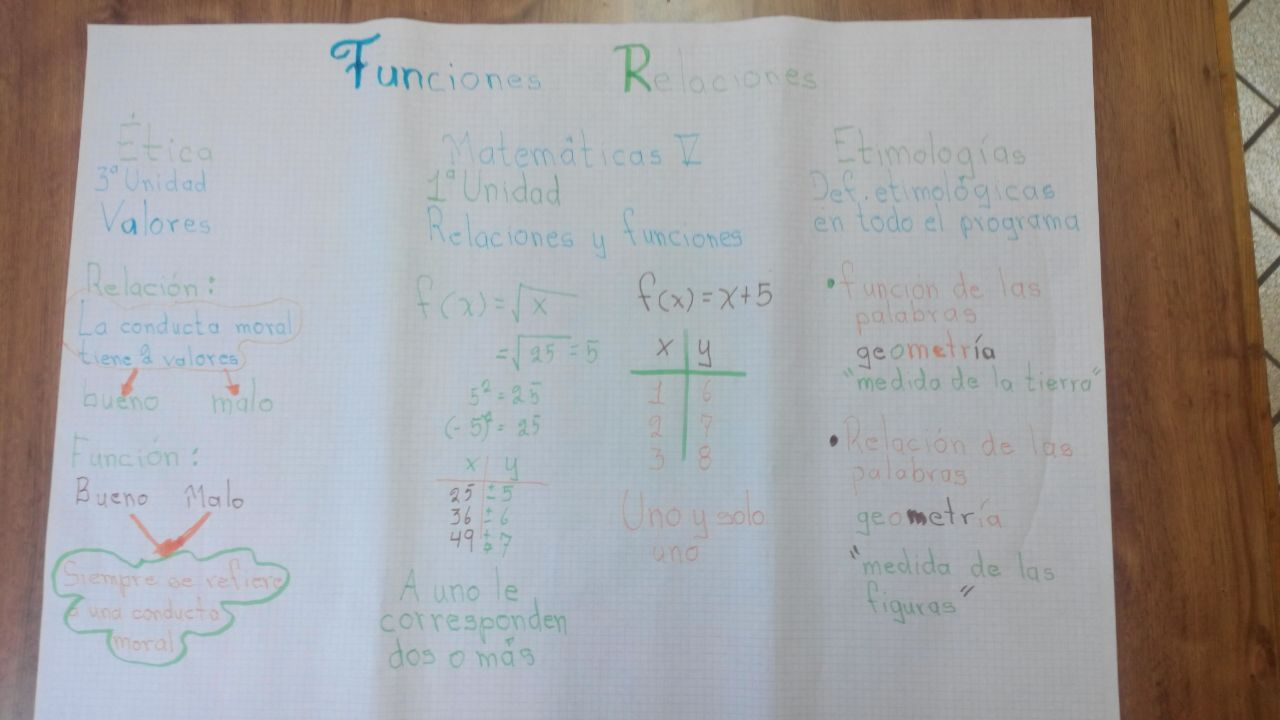 Funciones Relaciones
Ética
3ª Unidad
Valores
Relación:
La conducta moral
tiene 2 valores
bueno malo
Función:
Bueno Malo
Siempre se refiere
a una conducta
moral
Matemáticas V
1ª Unidad
Relaciones y funciones
f(x)=√x
=√25=5
5²=25
(-5)²=25
x y
25 ±5
36 ±6
49 ±7
A uno le
corresponden
dos o más
f(x)=x+5
x y
1 6
2 7
3 8
Uno y solo
uno
Etimologías
Def. etimológicas
en todo el programa
• función de las
palabras
geometría
"medida de la tierra"
• Relación de las
palabras
geometría
"medida de las
figuras"